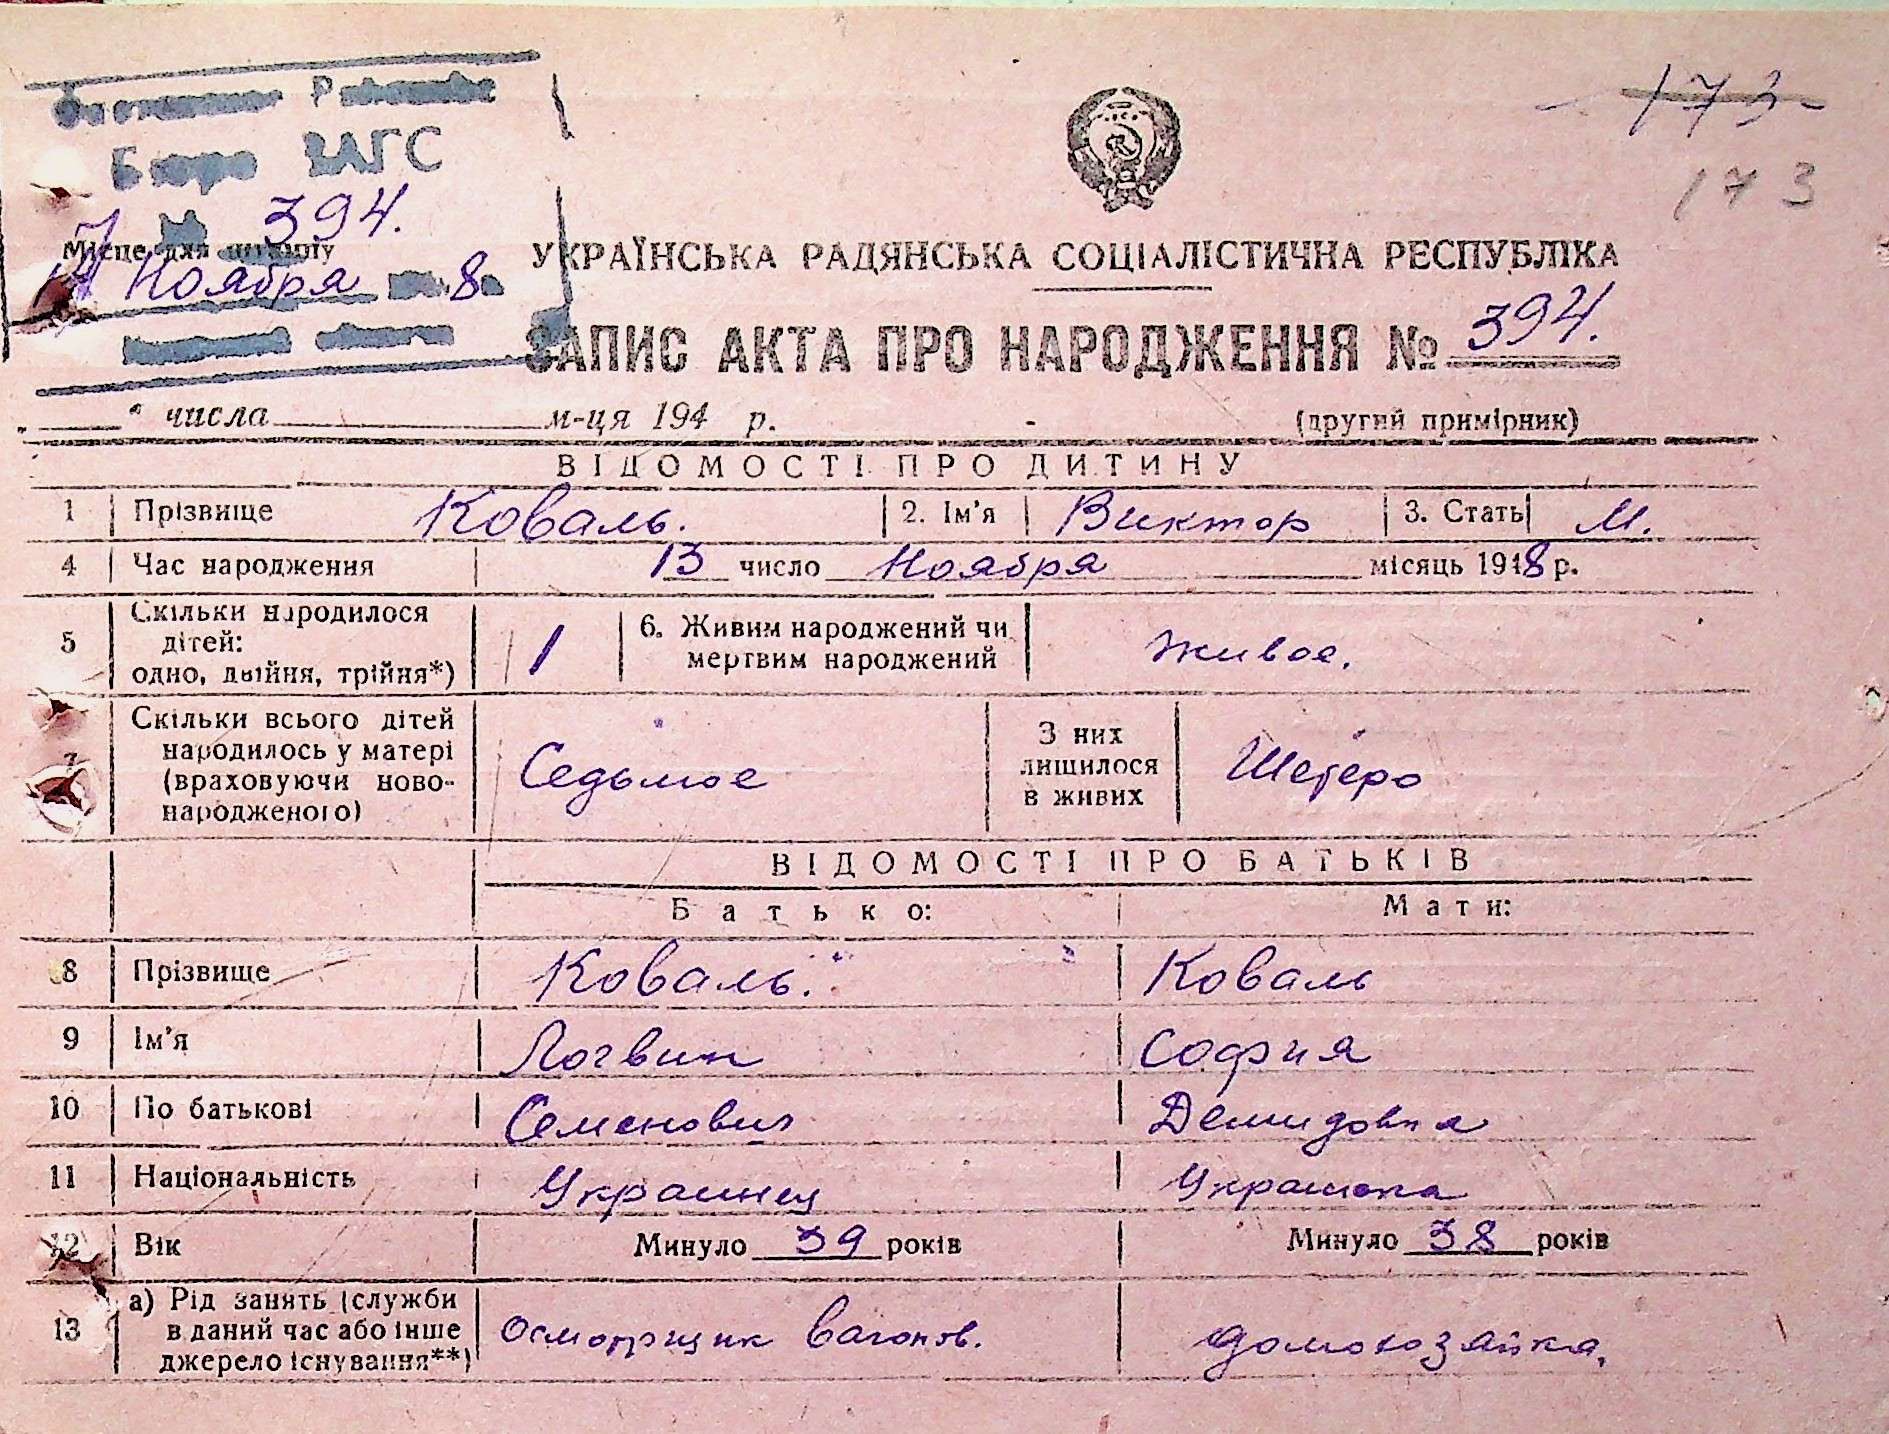 173
173
Бюро ЗАГС
№ 394.
Місце для штампу
Ноября 8
УКРАЇНСЬКА РАДЯНСЬКА СОЦІАЛІСТИЧНА РЕСПУБЛІКА
ЗАПИС АКТА ПРО НАРОДЖЕННЯ № 394.
" числа м-ця 194 р. (другий примірник)
ВІДОМОСТІ ПРО ДИТИНУ
1 Прізвище Коваль. 2. Ім'я Виктор 3. Стать М.
4 Час народження 13 число Ноября місяць 1948 р.
5 Скільки народилося дітей: одно, двійня, трійня*) 1 6. Живим народжений чи мертвим народжений живое.
7 Скільки всього дітей народилось у матері (враховуючи ново-народженого) Седьмое З них лишилося в живих Шетеро
ВІДОМОСТІ ПРО БАТЬКІВ
Батько: Мати:
8 Прізвище Коваль. Коваль
9 Ім'я Логвин София
10 По батькові Семенович Демидовна
11 Національність Украинец Украинка
12 Вік Минуло 39 років Минуло 38 років
13 а) Рід занять (служби в даний час або інше джерело існування**) Осмотрщик вагонов. домохозяйка.